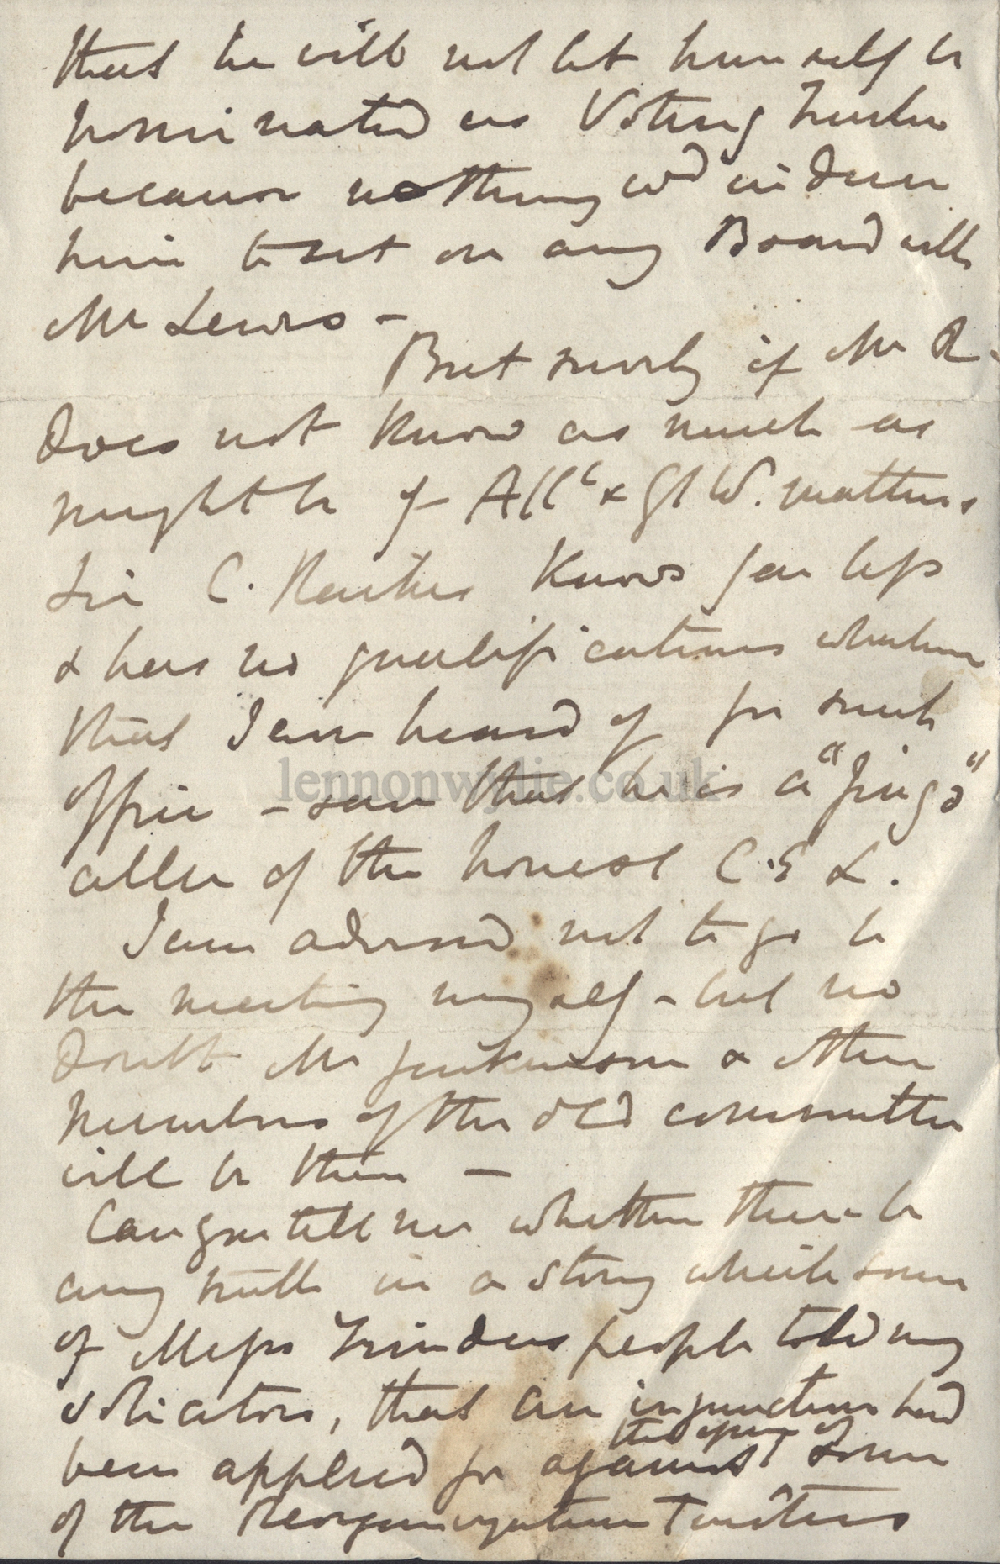 that he will not let himself be
nominated as Voting Trustee
because nothing wd induce
him to sit on any Board with
Mr Lewis -
But surely if Mr R.
does not know as much as
might be of Atlc & Gt W. matters
Sir C. knows far less
& has no qualifications whatever
that I am heard of for such
office - save that he is a "Jingo"
allie of the honest C. E L.
I am advised not to go to
the meeting myself - but no
doubt Mr Jenkinson & other
Members of the old committee
will be there -
Can you tell me whether there be
any truth in a story which some
of Messrs Trinders people told my
solicitors, that an injunction had
been applied for against some
of the Reorganization Trustees
lennonwylie.co.uk